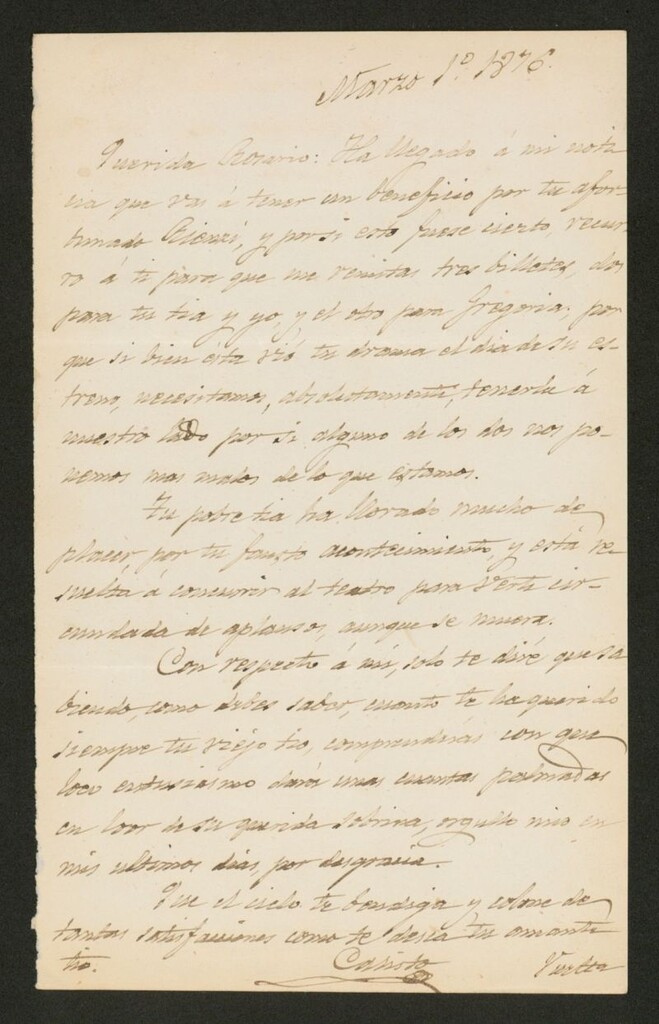 Marzo 1º 1876.
Querida Rosario: Ha llegado á mi noti
cia que vas á tener un beneficio por tu afor-
tunado Rienzi, y por si esto fuese cierto, recur-
ro á ti para que me remitas tres billetes, dos
para tu tia y yo, y el otro para Gregoria; por
que si bien ésta vió tu drama el dia de su es-
treno, necesitamos, absolutamente, tenerla á
nuestro lado por si alguno de los dos nos po-
nemos mas malos de lo que estamos.
Tu pobre tia ha llorado mucho de
placer, por tu fausto acontecimiento, y está re-
suelta á concurrir al teatro para verte cir-
cundada de aplausos, aunque se muera.
Con respecto á mí, solo te diré que sa
biendo, como debes saber, cuanto te ha querido
siempre tu viejo tio, comprenderás con que
loco entusiasmo dará unas cuantas palmadas
en loor de su querida sobrina, orgullo mio en
mis ultimos dias, por desgracia.
Que el cielo te bendiga y colme de
tantas satisfacciones como te desea tu amante
tio. Calisto Vuelta